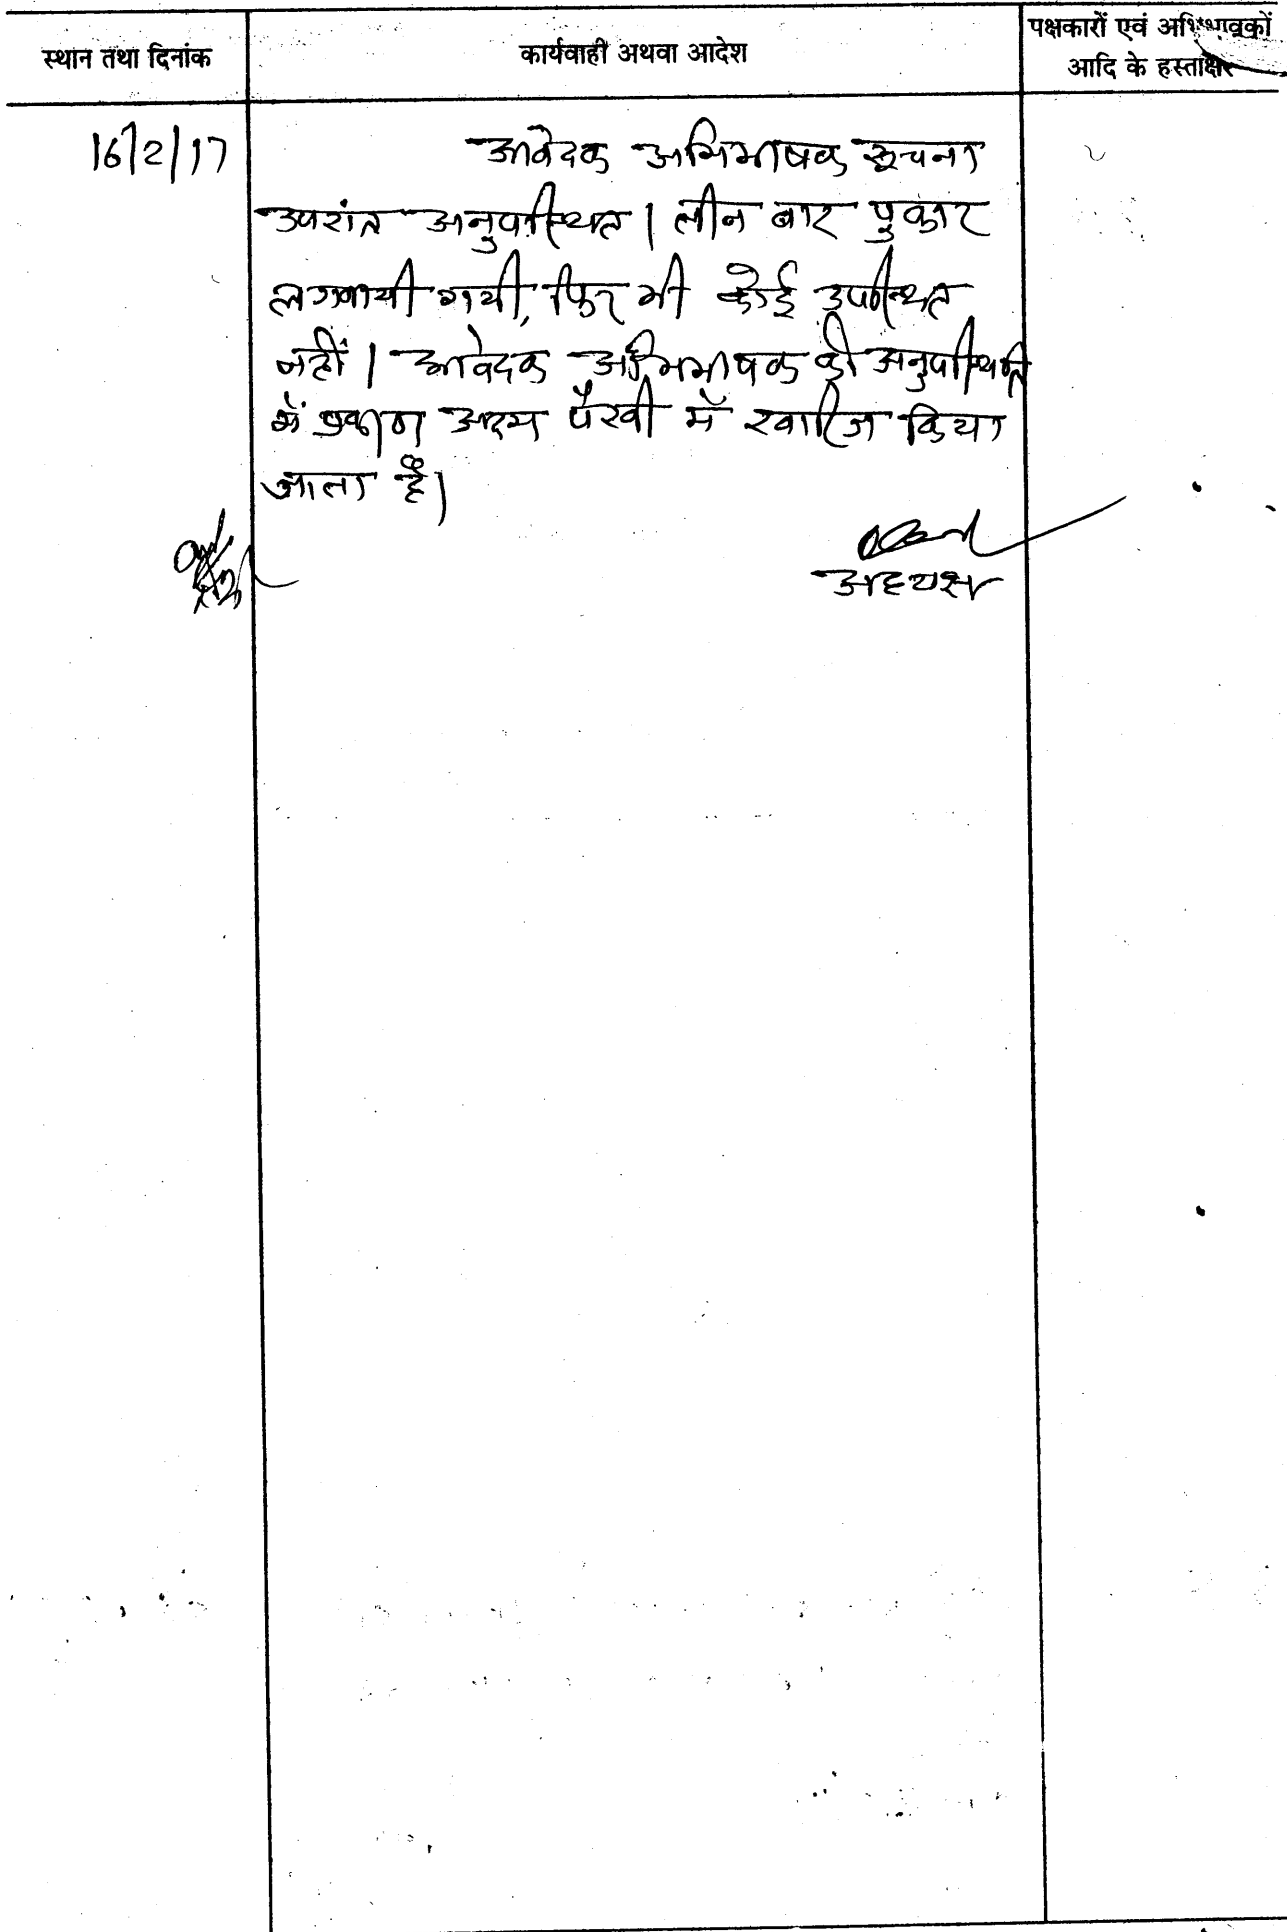 स्थान तथा दिनांक
कार्यवाही अथवा आदेश
पक्षकारों एवं अभिभावकों
आदि के हस्ताक्षर
16/2/17
आवेदक अभिभाषक सूचना
उपरांत अनुपस्थित। तीन बार पुकार
लगवायी गयी, फिर भी कोई उपस्थित
नहीं। आवेदक अभिभाषक की अनुपस्थिति
में प्रकरण अदम पैरवी में खारिज किया
जाता है।
अध्यक्ष